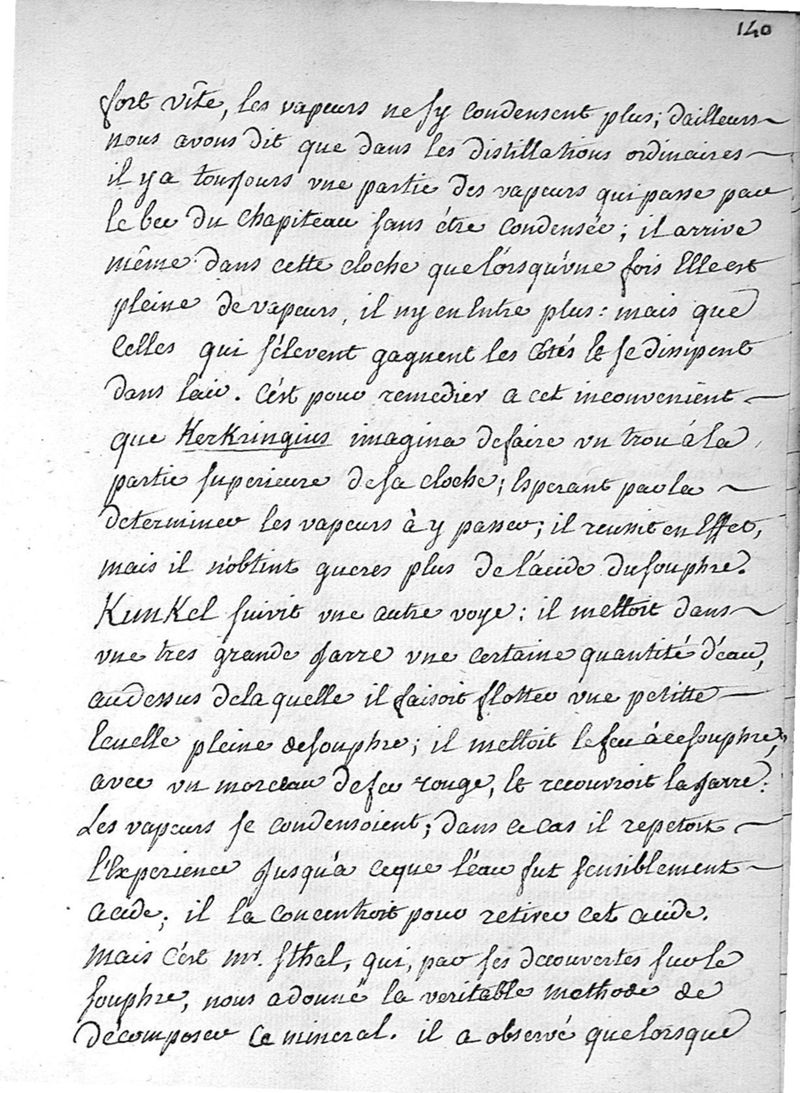 140
fort vîte, les vapeurs ne sy condensent plus; dailleurs
nous avons dit que dans les distillations ordinaires
il y a tousjours vne partie des vapeurs qui passe par
le bec du chapiteau sans étre condensée; il arrive
même dans cette cloche que lórsqu'vne fois Elle est
pleine de vapeurs, il ny en Entre plus: mais que
Celles qui s'élevent gagnent les Côtés Et se dissipent
dans l'air. C'ést pour remedier a cet inconvenient
que Kerkringius imagina de faire vn trou à la
partie superieure de sa cloche; Esperant par la
determiner les vapeurs à y passer; il reussit en Effet,
mais il n'obtint gueres plus de l'ácide du souphre.
Kunkel suivit vne autre voye: il mettoit dans
vne tres grande jarre vne certaine quantité d'éau,
au dessus de la quelle il faisoit flotter vne petitte
Ecuelle pleine de souphre; il mettoit le feu à ce souphre,
avec vn morceau de fer rouge, Et recouvroit la jarre:
Les vapeurs se condensoient; dans ce cas il repetoit
l'Experience jusqu'a ce que l'éau fut sensiblement
acide; il la concentroit pour retirer cet acide.
Mais c'ést mr. Sthal, qui, par ses decouvertes sur le
souphre, nous a donné la veritable methode de
décomposer ce mineral. il a observé que lorsque